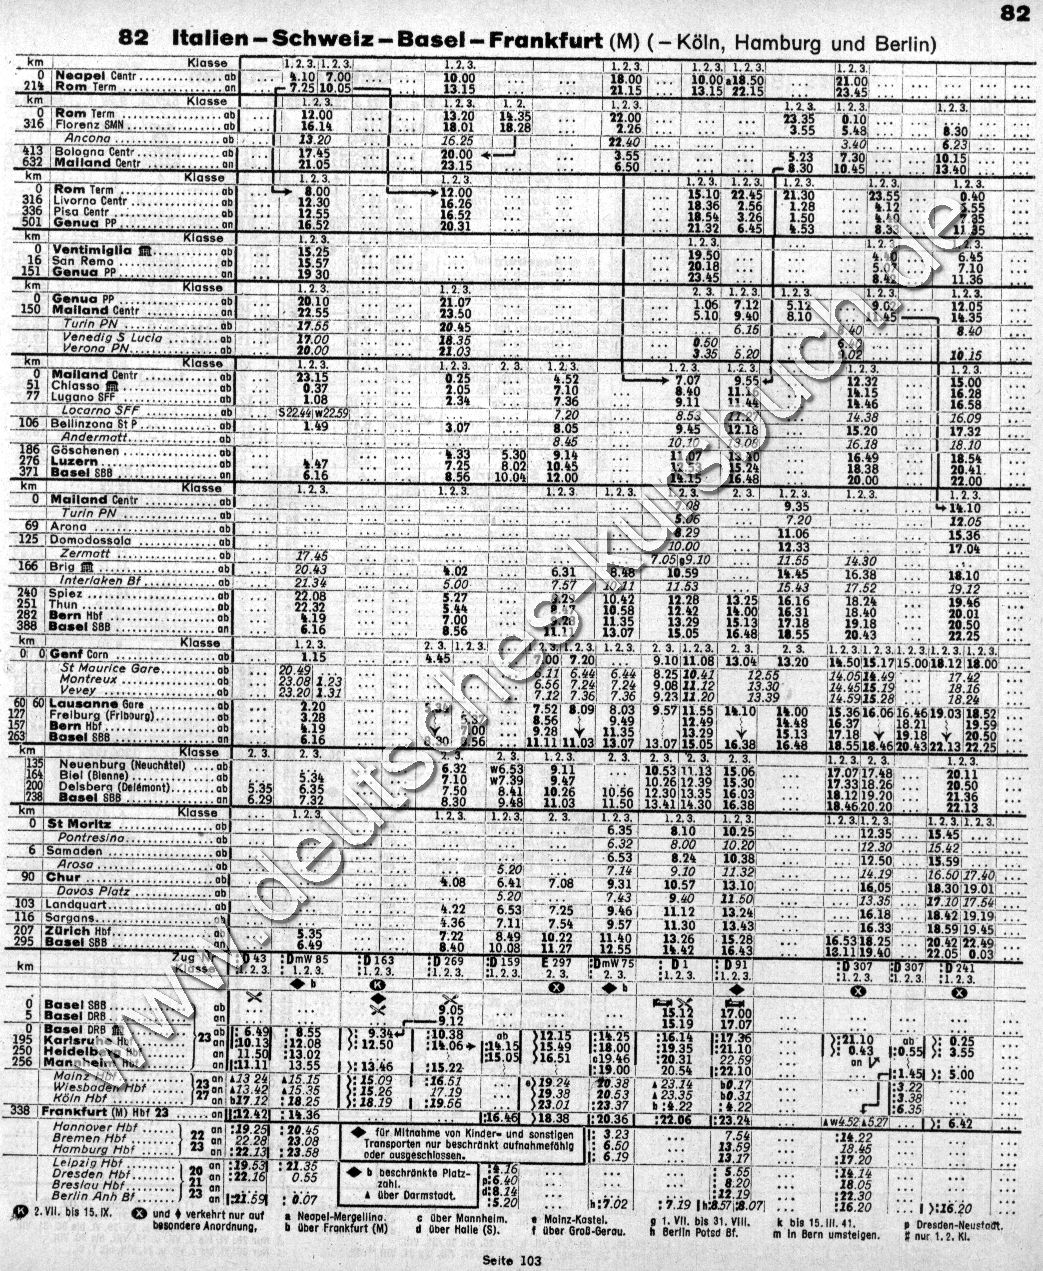 82
82 Italien – Schweiz – Basel – Frankfurt (M) (– Köln, Hamburg und Berlin)
km Klasse 1. 2. 3. 1. 2. 3. 1. 2. 3. 1. 2. 3. 1. 2. 3. 1. 2. 3. 1. 2. 3.
0 Neapel Centr ab 4.10 7.00 10.00 18.00 10.00 a18.50 21.00
214 Rom Term an 7.25 10.05 13.15 21.15 13.15 22.15 23.45
km Klasse 1. 2. 3. 1. 2. 3. 1. 2. 1. 2. 3. 1. 2. 3. 1. 2. 3. 1. 2. 3.
0 Rom Term ab 12.00 13.20 14.35 22.00 23.35 0.10
316 Florenz SMN ab 16.14 18.01 18.28 2.26 3.55 5.48 8.30
Ancona ab 13.20 16.25 22.40 3.40 6.23
413 Bologna Centr ab 17.45 20.00 3.55 5.23 7.30 10.15
632 Mailand Centr an 21.05 23.15 6.50 8.30 10.45 13.40
km Klasse
0 Rom Term ab 8.00 12.00 15.10 22.45 21.30 23.55 0.40
316 Livorno Centr ab 12.30 16.26 18.36 2.56 1.28 4.12
336 Pisa Centr ab 12.55 16.52 18.54 3.26 1.50
501 Genua PP an 16.52 20.31 21.32 6.45 4.53 11.35
km Klasse 1. 2. 3.
0 Ventimiglia ab 15.25 19.50 6.45
16 San Remo ab 15.57 20.18 7.10
151 Genua PP an 19.30 23.45 11.36
km Klasse
0 Genua PP ab 20.10 21.07 1.06 7.12 5.12 12.05
150 Mailand Centr an 22.55 23.50 5.10 9.40 8.10 11.45 14.35
Turin PN ab 17.55 20.45 6.15 8.40
Venedig S Lucia ab 17.00 18.35 0.50
Verona PN ab 20.00 21.03 3.35 5.20 9.02 10.15
km Klasse 1. 2. 3. 1. 2. 3. 2. 3. 1. 2. 3.
0 Mailand Centr ab 23.15 0.25 4.52 7.07 9.55 12.32 15.00
51 Chiasso ab 0.37 2.05 7.10 8.40 14.15 16.28
77 Lugano SFF ab 1.08 2.34 7.36 9.11 11.44 14.46 16.58
Locarno SFF ab S22.44 W22.59 7.20 8.53 14.38 16.09
106 Bellinzona St P ab 1.49 3.07 8.05 9.45 12.18 15.20 17.32
Andermatt ab 8.45 10.10 16.18 18.10
186 Göschenen ab 4.33 5.30 9.14 11.07 16.49 18.54
276 Luzern ab 4.47 7.25 8.02 10.45 15.24 18.38 20.41
371 Basel SBB an 6.16 8.56 10.04 12.00 14.15 16.48 20.00 22.00
km Klasse
0 Mailand Centr ab 9.35 14.10
Turin PN ab 7.20 12.05
69 Arona ab 11.06 15.36
125 Domodossola ab 12.33 17.04
Zermatt ab 17.45 7.05 g9.10 11.55 14.30
166 Brig ab 20.43 4.02 6.31 8.48 10.59 14.45 16.38 18.10
Interlaken Bf ab 21.34 5.00 7.57 10.11 11.53 15.43 17.52 19.12
240 Spiez ab 22.08 5.27 10.42 12.28 13.25 16.16 18.24 19.46
251 Thun ab 22.32 5.44 10.58 12.42 14.00 16.31 18.40 20.01
282 Bern Hbf ab 4.19 7.00 11.35 13.29 15.13 17.18 19.18 20.50
388 Basel SBB an 6.16 8.56 11.11 13.07 15.05 16.48 18.55 20.43 22.25
km Klasse
0 0 Genf Corn ab 1.15 4.45 7.00 7.20 9.10 11.08 13.04 13.20 14.50 15.17 15.00 18.12 18.00
St Maurice Gare ab 20.49 6.11 6.44 6.44 8.25 10.41 12.55 14.05 14.49 17.42
Montreux ab 23.08 1.23 6.56 7.24 7.24 9.08 11.12 13.30 14.45 15.19 18.16
Vevey ab 23.20 1.31 7.12 7.36 7.36 9.23 11.20 13.39 14.59 15.28 18.24
60 60 Lausanne Gare ab 2.20 7.52 8.09 8.03 9.57 11.55 14.10 14.00 15.36 16.06 16.46 19.03 18.52
127 Freiburg (Fribourg) ab 3.28 8.56 9.49 12.49 14.48 16.37 18.21 19.59
157 Bern Hbf ab 4.19 9.28 11.35 13.29 15.13 17.18 19.18 20.50
263 Basel SBB an 6.16 8.56 11.11 11.03 13.07 13.07 15.05 16.38 16.48 18.55 18.46 20.43 22.13 22.25
km Klasse
135 Neuenburg (Neuchâtel) ab 6.32 w6.53 9.11 10.53 11.13 15.06 17.07 17.48 20.11
164 Biel (Bienne) ab 5.34 7.10 w7.39 9.47 10.26 12.39 15.30 17.33 18.26 20.50
200 Delsberg (Delémont) ab 5.35 6.35 7.50 8.41 10.26 10.56 12.30 13.35 16.03 18.12 19.20 21.36
238 Basel SBB an 6.29 7.32 8.30 9.48 11.03 11.50 13.41 14.30 16.38 18.46 20.20 22.13
km Klasse
0 St Moritz ab 6.35 8.10 10.25 12.35 15.45
Pontresina ab 6.32 8.00 10.20 12.30 15.42
6 Samaden ab 6.53 8.24 10.38 12.50 15.59
Arosa ab 5.20 7.14 9.10 11.32 14.19 16.50 17.40
90 Chur ab 4.08 6.41 7.08 9.31 10.57 13.10 16.05 18.30 19.01
Davos Platz ab 5.20 7.43 9.40 11.50 13.35 17.10 17.54
103 Landquart ab 4.22 6.53 7.25 9.46 11.12 13.24 16.18 18.42 19.19
116 Sargans ab 4.36 7.11 7.54 9.57 11.30 13.43 16.33 18.59 19.45
207 Zürich Hbf ab 5.35 7.22 8.49 10.22 11.40 13.26 15.28 16.53 18.25 20.42 22.49
295 Basel SBB an 6.49 8.40 10.08 11.27 12.55 14.42 16.43 18.11 19.40 22.05 0.03
km Zug Nr Klasse D 43 DmW 85 D 163 D 269 D 159 E 297 DmW 75 D 1 D 91 D 307 D 307 D 241
0 Basel SBB ab 9.05 15.12 17.00
5 Basel DRB an 9.12 15.19 17.07
0 Basel DRB 23 ab 6.49 8.55 9.34 10.38 ab 12.15 14.25 16.14 17.36 21.10 ab 0.25
195 Karlsruhe Hbf an 10.13 12.08 12.50 14.06 14.15 15.49 18.00 19.35 21.10 0.43 0.55 3.55
250 Heidelberg Hbf an 11.50 13.02 15.05 16.51 c19.46 20.31 22.59 an
256 Mannheim Hbf an 11.11 13.55 13.46 15.22 19.00 20.54 22.10 1.45 5.00
Mainz Hbf an 13.24 15.15 15.09 16.51 e19.24 20.38 23.14 b0.17 3.22
Wiesbaden Hbf 23 27 an 13.42 15.35 15.26 17.19 19.38 20.53 23.35 b0.31 3.38
Köln Hbf an b17.12 18.25 18.19 19.56 23.01 23.37 4.22 4.22 6.35
338 Frankfurt (M) Hbf 23 an 12.42 14.36 16.46 18.38 20.36 22.06 23.24 w4.52 5.27 6.42
Hannover Hbf an 19.25 20.45 3.23 7.54 14.22
Bremen Hbf 22 23 an 22.28 23.08 6.50 13.59 18.45
Hamburg Hbf an 22.13 23.58 6.19 13.17 17.20
Leipzig Hbf an 19.53 21.35 4.16 5.55 14.14
Dresden Hbf 20 21 an 22.16 0.55 p6.40 8.20 18.05
Breslau Hbf 23 an d8.14 12.19 22.30
Berlin Anh Bf an 21.59 0.07 5.20 h7.02 7.19 h8.57 8.07 16.20 16.20
◆ für Mitnahme von Kinder- und sonstigen Transporten nur beschränkt aufnahmefähig oder ausgeschlossen.
◆ b beschränkte Platzzahl.
▲ über Darmstadt.
K 2. VII. bis 15. IX.
X und ♦ verkehrt nur auf besondere Anordnung,
a Neapel-Mergellina.
b über Frankfurt (M)
c über Mannheim.
d über Halle (S).
e Mainz-Kastel.
f über Groß-Gerau.
g 1. VII. bis 31. VIII.
h Berlin Potsd Bf.
k bis 15. III. 41.
m in Bern umsteigen.
p Dresden-Neustadt.
# nur 1. 2. Kl.
Seite 103
www.deutsches-kursbuch.de